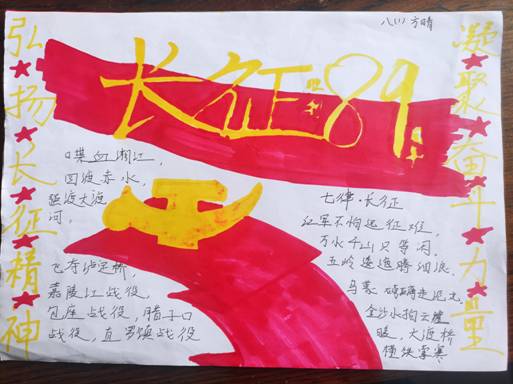 八(1) 方晴
弘扬长征精神
长征89
凝聚奋斗力量
喋血湘江,
四渡赤水,
强渡大渡
河,
飞夺泸定桥,
嘉陵江战役,
包座战役,腊子口
战役,直罗镇战役
七律·长征
红军不怕远征难,
万水千山只等闲.
五岭逶迤腾细浪,
乌蒙磅礴走泥丸
金沙水拍云崖
暖,大渡桥
横铁索寒